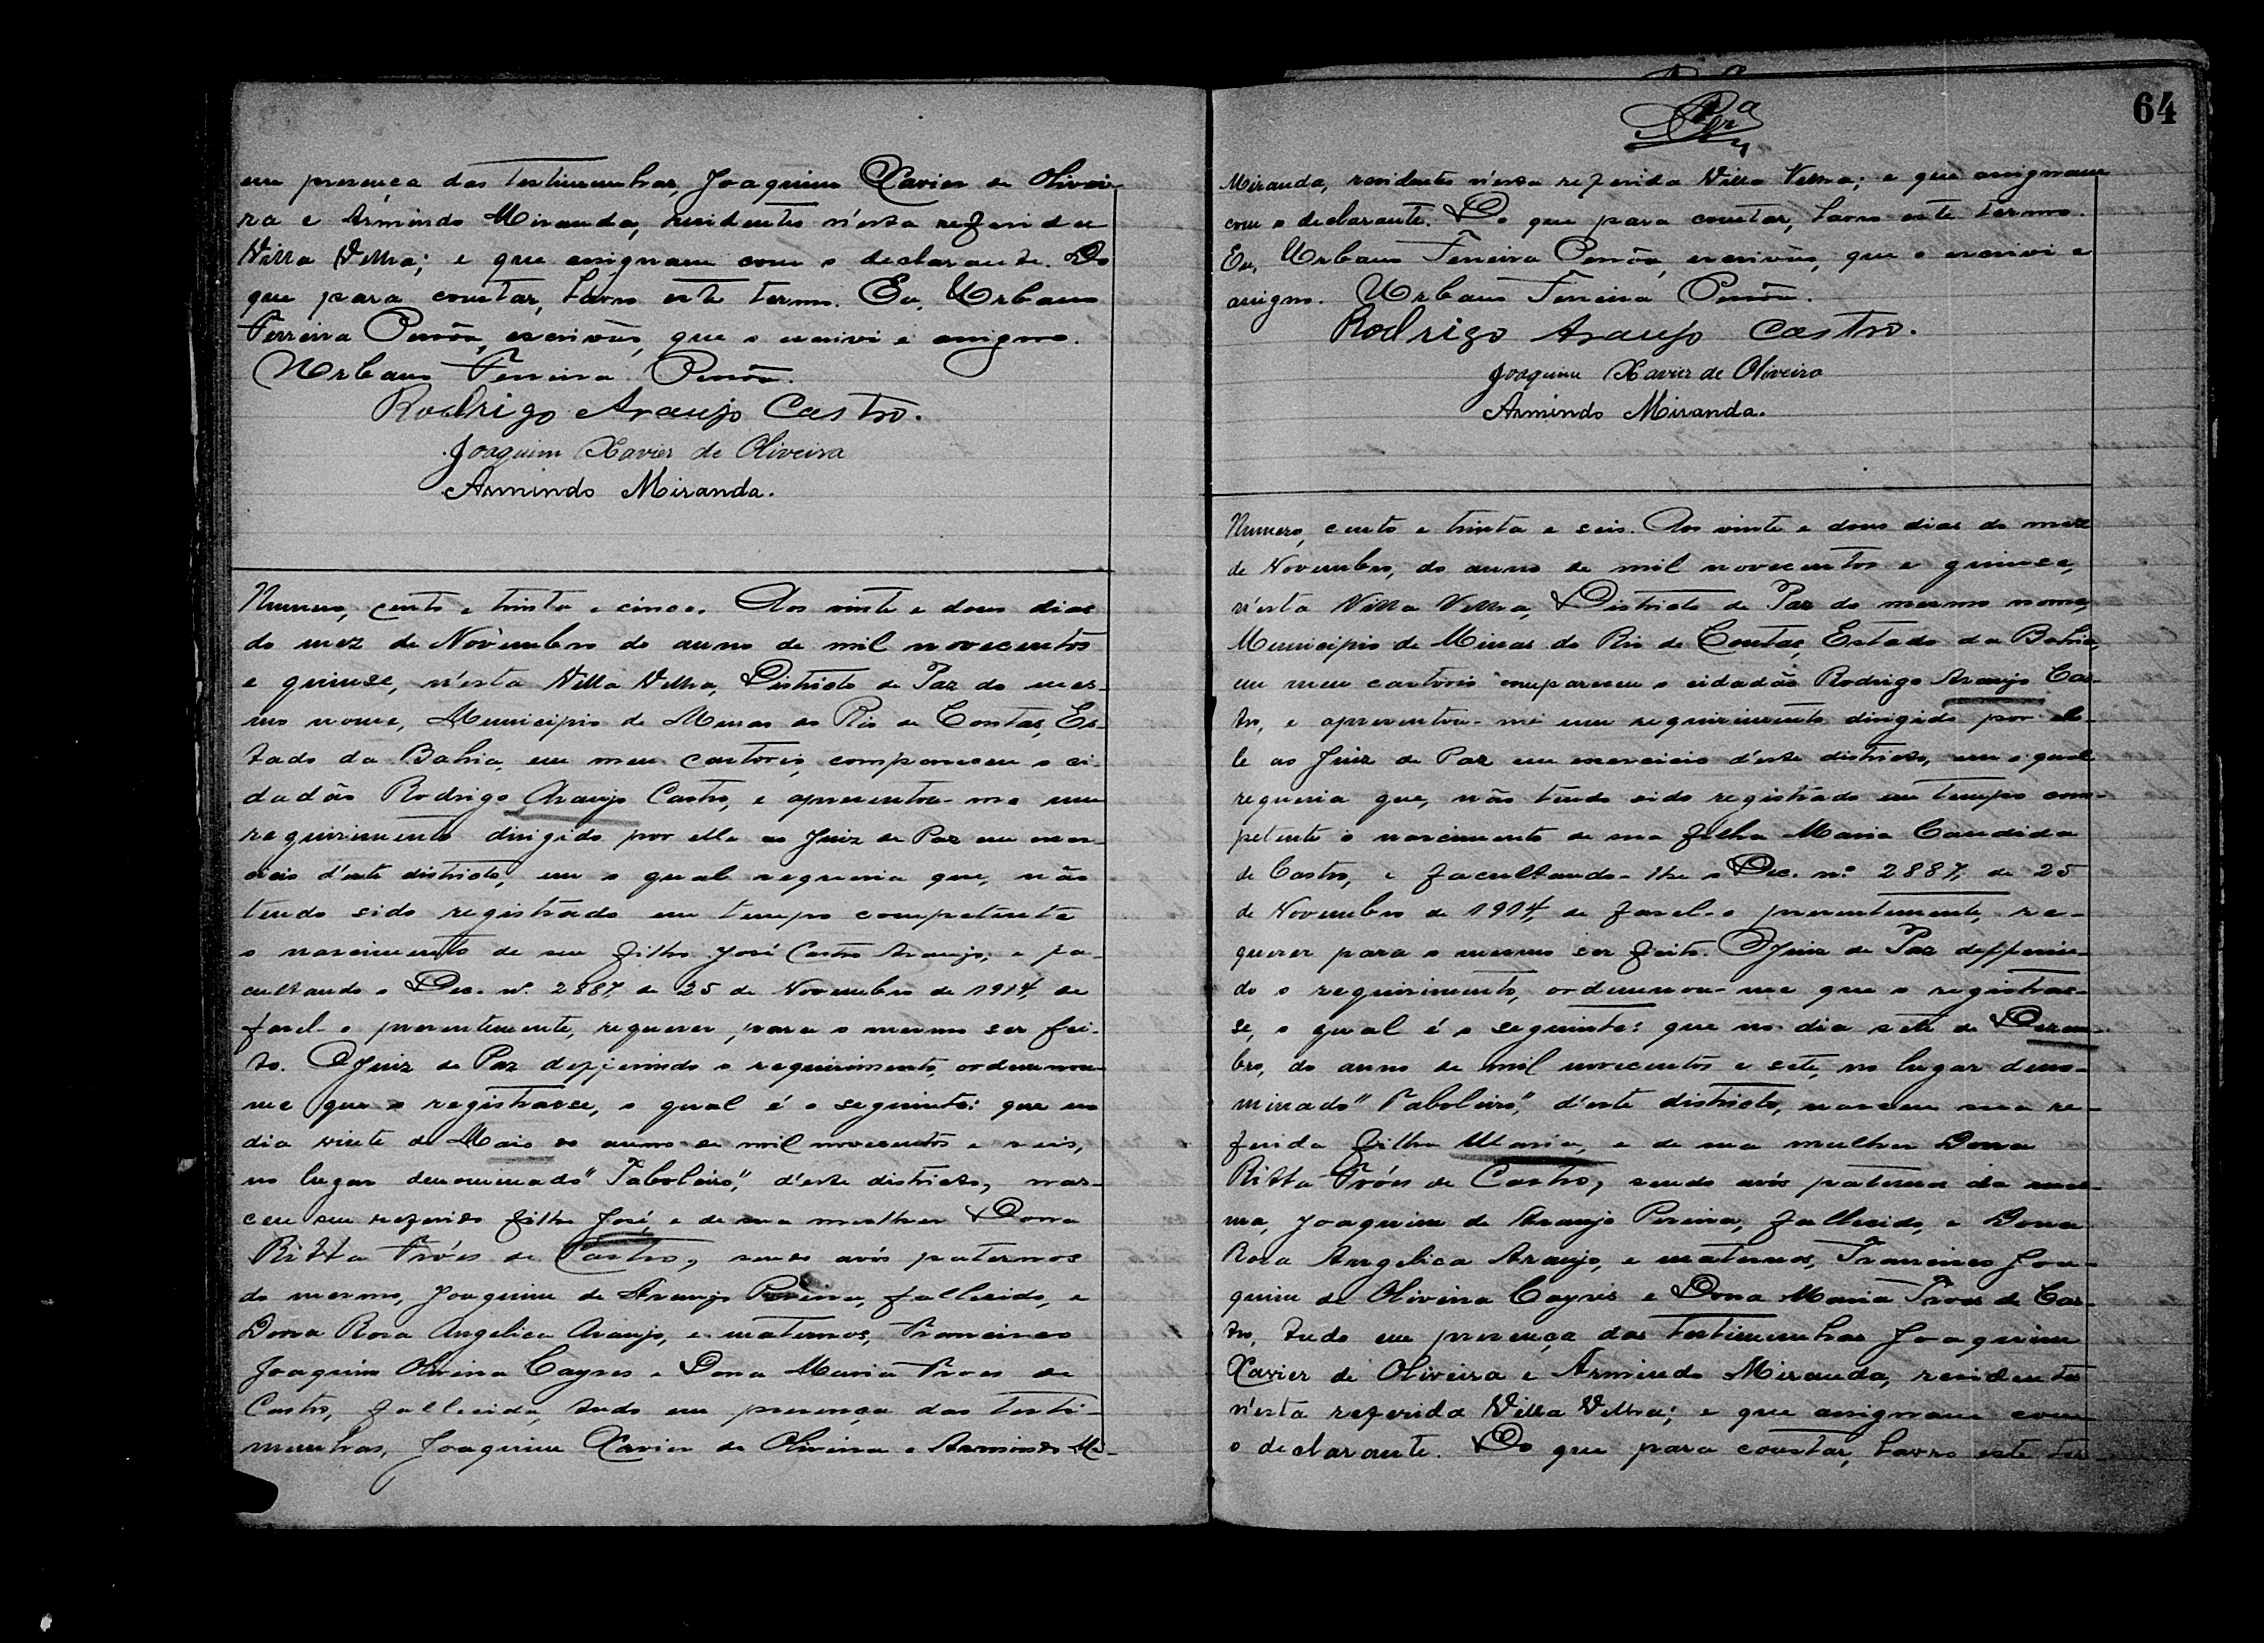 em presença das testimunhas, Joaquim Xavier de Olivei-
ra e Armindo Miranda, residentes n'esta referida
Villa Velha; e que assignam com o declarante. Do
que para constar, lavro este termo. Eu, Urbano
Ferreira, escrivão, que o escrivi e assigno.
Urbano Ferreira
Rodrigo Araujo Castro.
Joaquim Xavier de Oliveira
Armindo Miranda.
Numero, cento e trinta e cinco. Aos vinte e dous dias
do mez de Novembro do anno de mil novecentos
e quinze, n'esta Villa Velha, Districto de Paz do mes-
mo nome, Municipio de Minas do Rio de Contas, Es-
tado da Bahia, em meu cartorio, compareceu o ci-
dadão Rodrigo Araujo Castro, e apresentou-me um
requirimento dirigido por elle ao Juiz de Paz em exer-
cicio d'este districto, em o qual requeria que, não
tendo sido registrado em tempo competente
o nascimento de seu filho José Castro Araujo, e fa-
cultando o Dec. nº. 2887, de 25 de Novembro de 1914, de
fazel-o presentemente, requerer, para o mesmo ser fei-
to. O Juiz de Paz defferindo o requirimento, ordenou-
me que o registrasse, o qual é o seguinte: que no
dia vinte de Maio do anno de mil novecentos e seis,
no lugar denominado "Taboleiro", d'este districto, nas-
ceu seu referido filho José, e de sua mulher Dona
Ritta Fróes de Castro, sendo avós paternos
do mesmo, Joaquim de Araujo Pereira, fallecido, e
Dona Rosa Angelica Araujo, e maternos, Francisco
Joaquim Oliveira Cayres e Dona Maria Froes de
Castro, fallecida, tudo em presença das testi-
munhas, Joaquim Xavier de Oliveira e Armindo Mi-
64
Miranda, residentes n'esta referida Villa Velha; e que assignam
com o declarante. Do que para constar, lavro este termo.
Eu, Urbano Ferreira, escrivão, que o escrivi e
assigno. Urbano Ferreira
Rodrigo Araujo Castro.
Joaquim Xavier de Oliveira
Armindo Miranda.
Numero, cento e trinta e seis. Aos vinte e dous dias do mez
de Novembro, do anno de mil novecentos e quinze,
n'esta Villa Velha, Districto de Paz do mesmo nome,
Municipio de Minas do Rio de Contas, Estado da Bahia,
em meu cartorio compareceu o cidadão Rodrigo Araujo Cas-
tro, e apresentou-me um requirimento dirigido por el-
le ao Juiz de Paz em exercicio d'este districto, em o qual
requeria que, não tendo sido registrado em tempo com-
petente o nascimento de sua filha Maria Candida
de Castro, e facultando-lhe o Dec. n.º 2887, de 25
de Novembro de 1914, de fazel-o presentemente, re-
querer para o mesmo ser feito. O Juiz de Paz defferin-
do o requirimento, ordenou-me que o registras-
se, o qual é o seguinte: que no dia sete de Dezem-
bro, do anno de mil novecentos e sete, no lugar deno-
minado "Taboleiro", d'este districto, nasceu sua re-
ferida filha Maria, e de sua mulher Dona
Ritta Fróes de Castro, sendo avós paternos da mes-
ma, Joaquim de Araujo Pereira, fallecido, e Dona
Rosa Angelica Araujo, e maternos, Francisco Joa-
quim de Oliveira Cayres e Dona Maria Froes de Cas-
tro, tudo em presença das testimunhas Joaquim
Xavier de Oliveira e Armindo Miranda, residentes
n'esta referida Villa Velha; e que assignam com
o declarante. Do que para constar, lavro este ter-